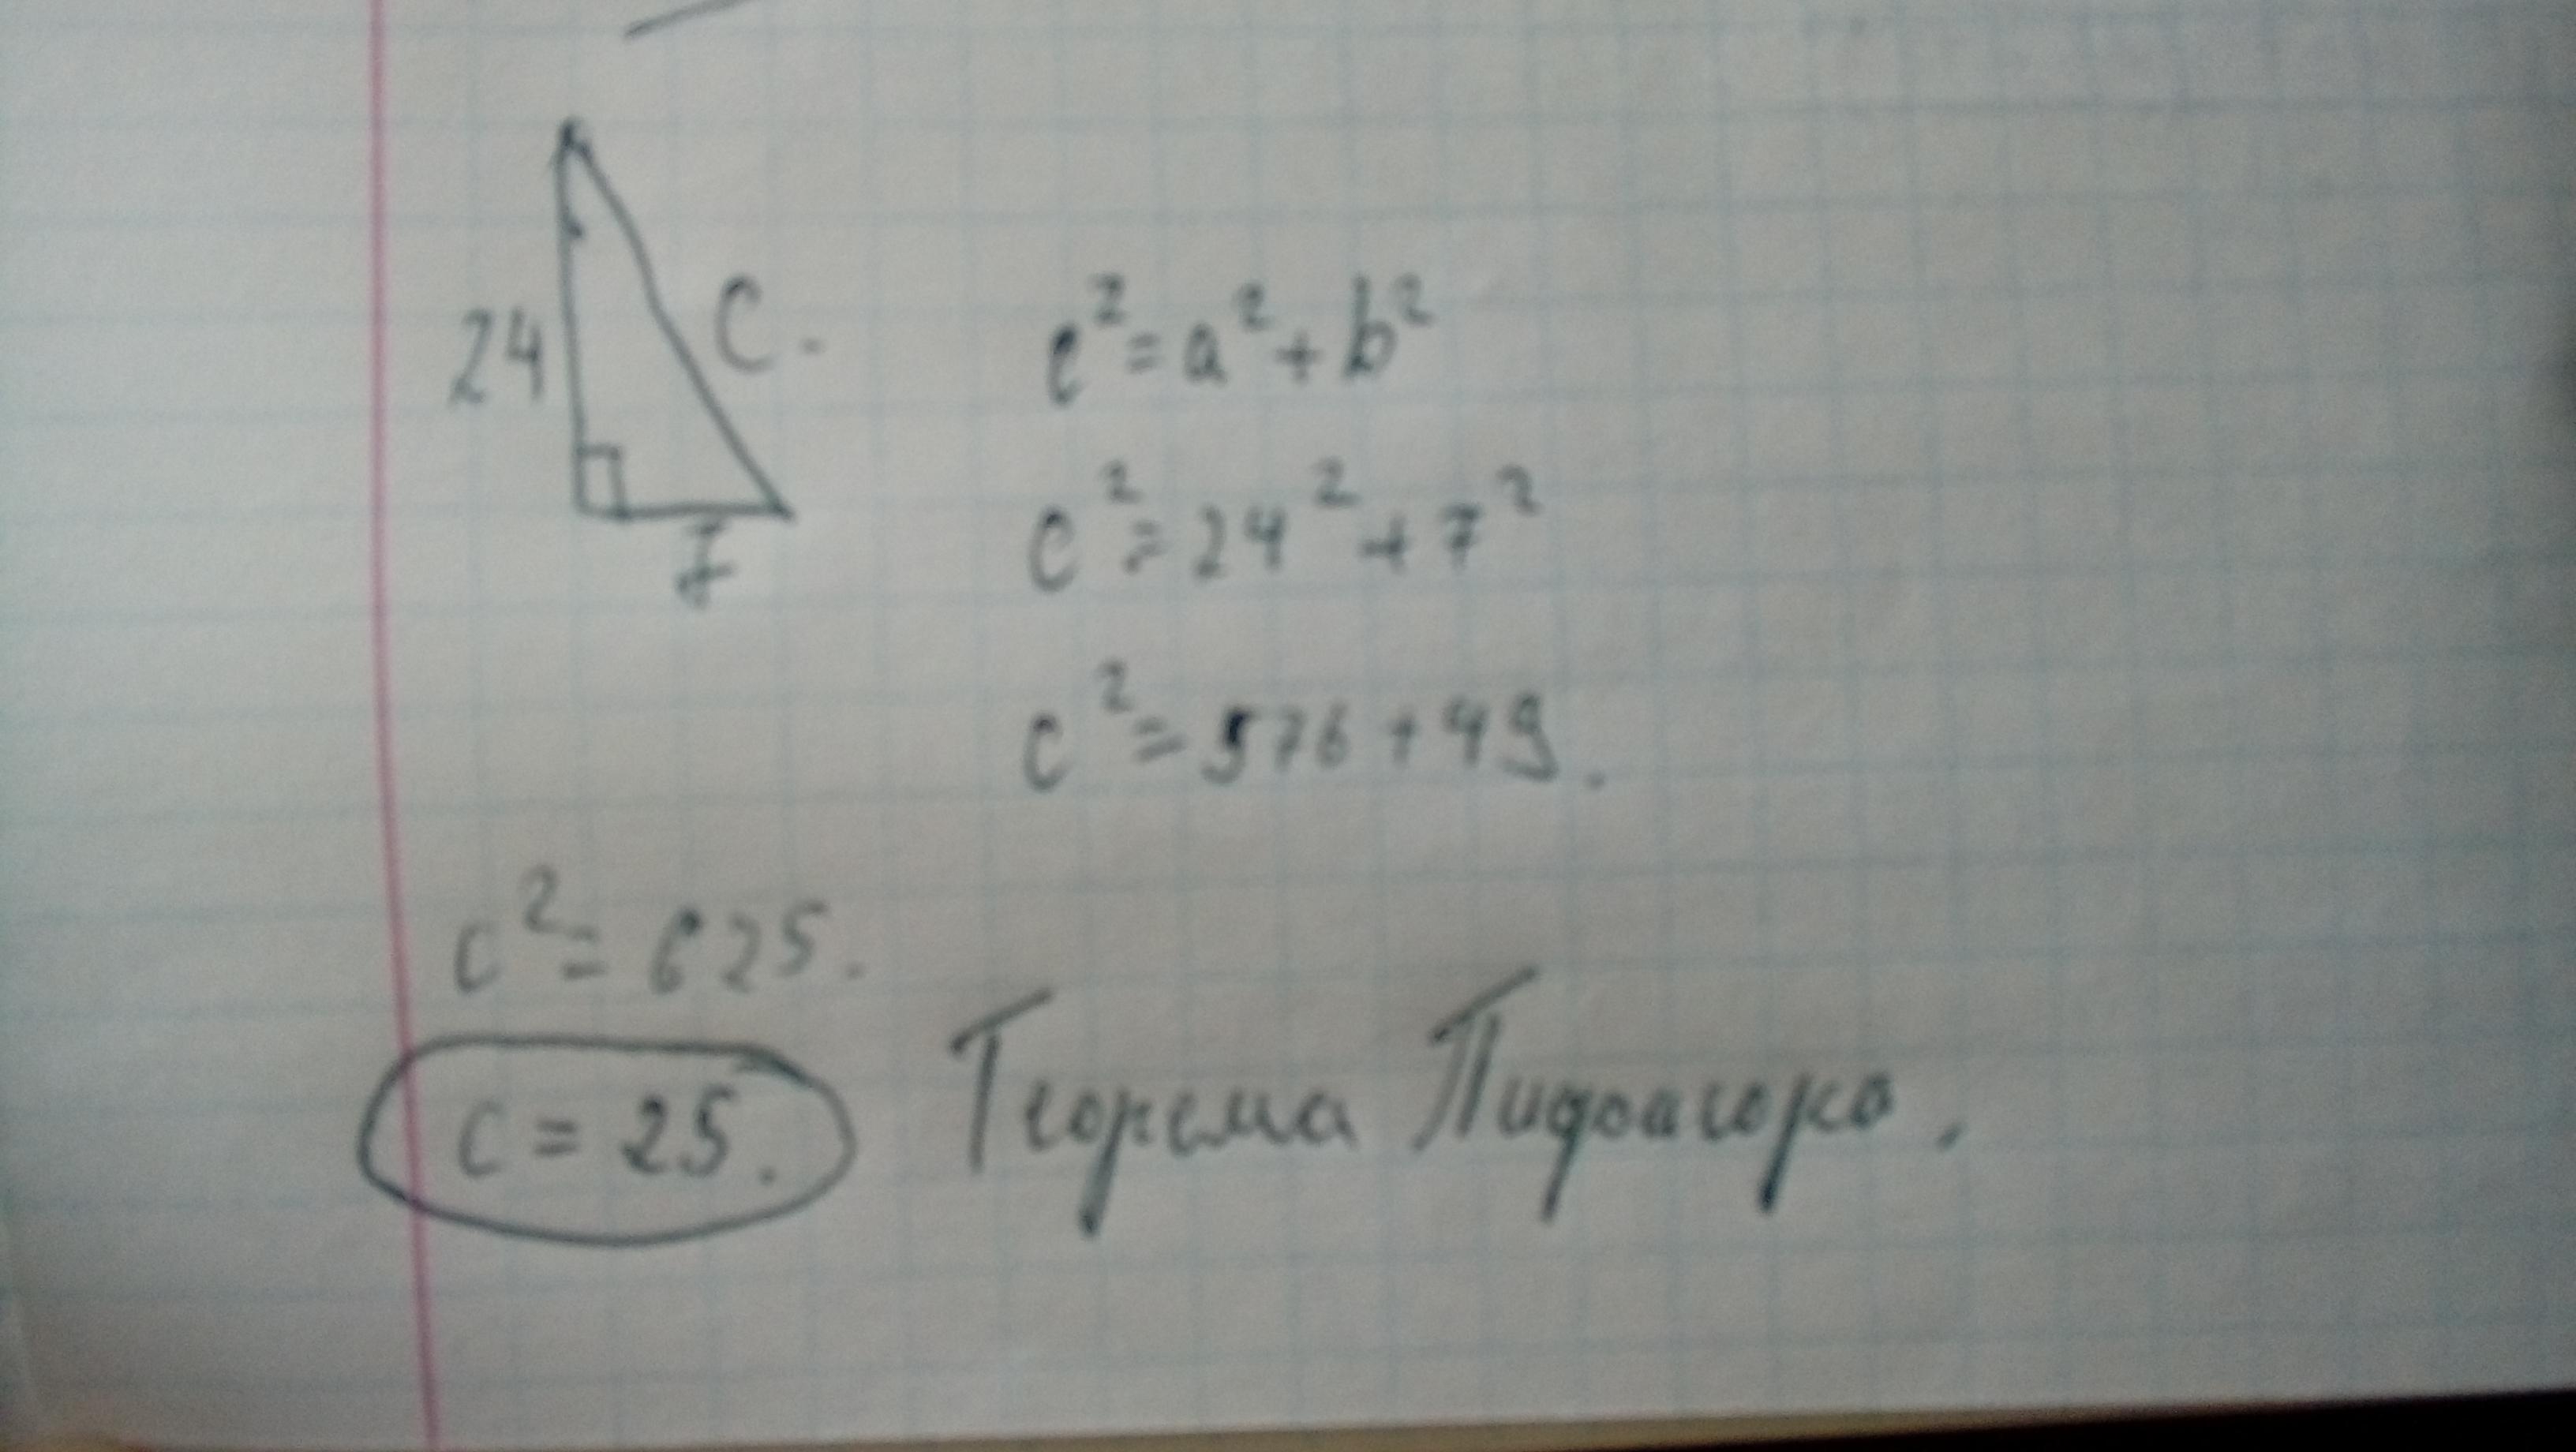 24
C.
7
c² = a² + b²
c² = 24² + 7²
c² = 576 + 49.
c² = 625.
c = 25.
Теорема